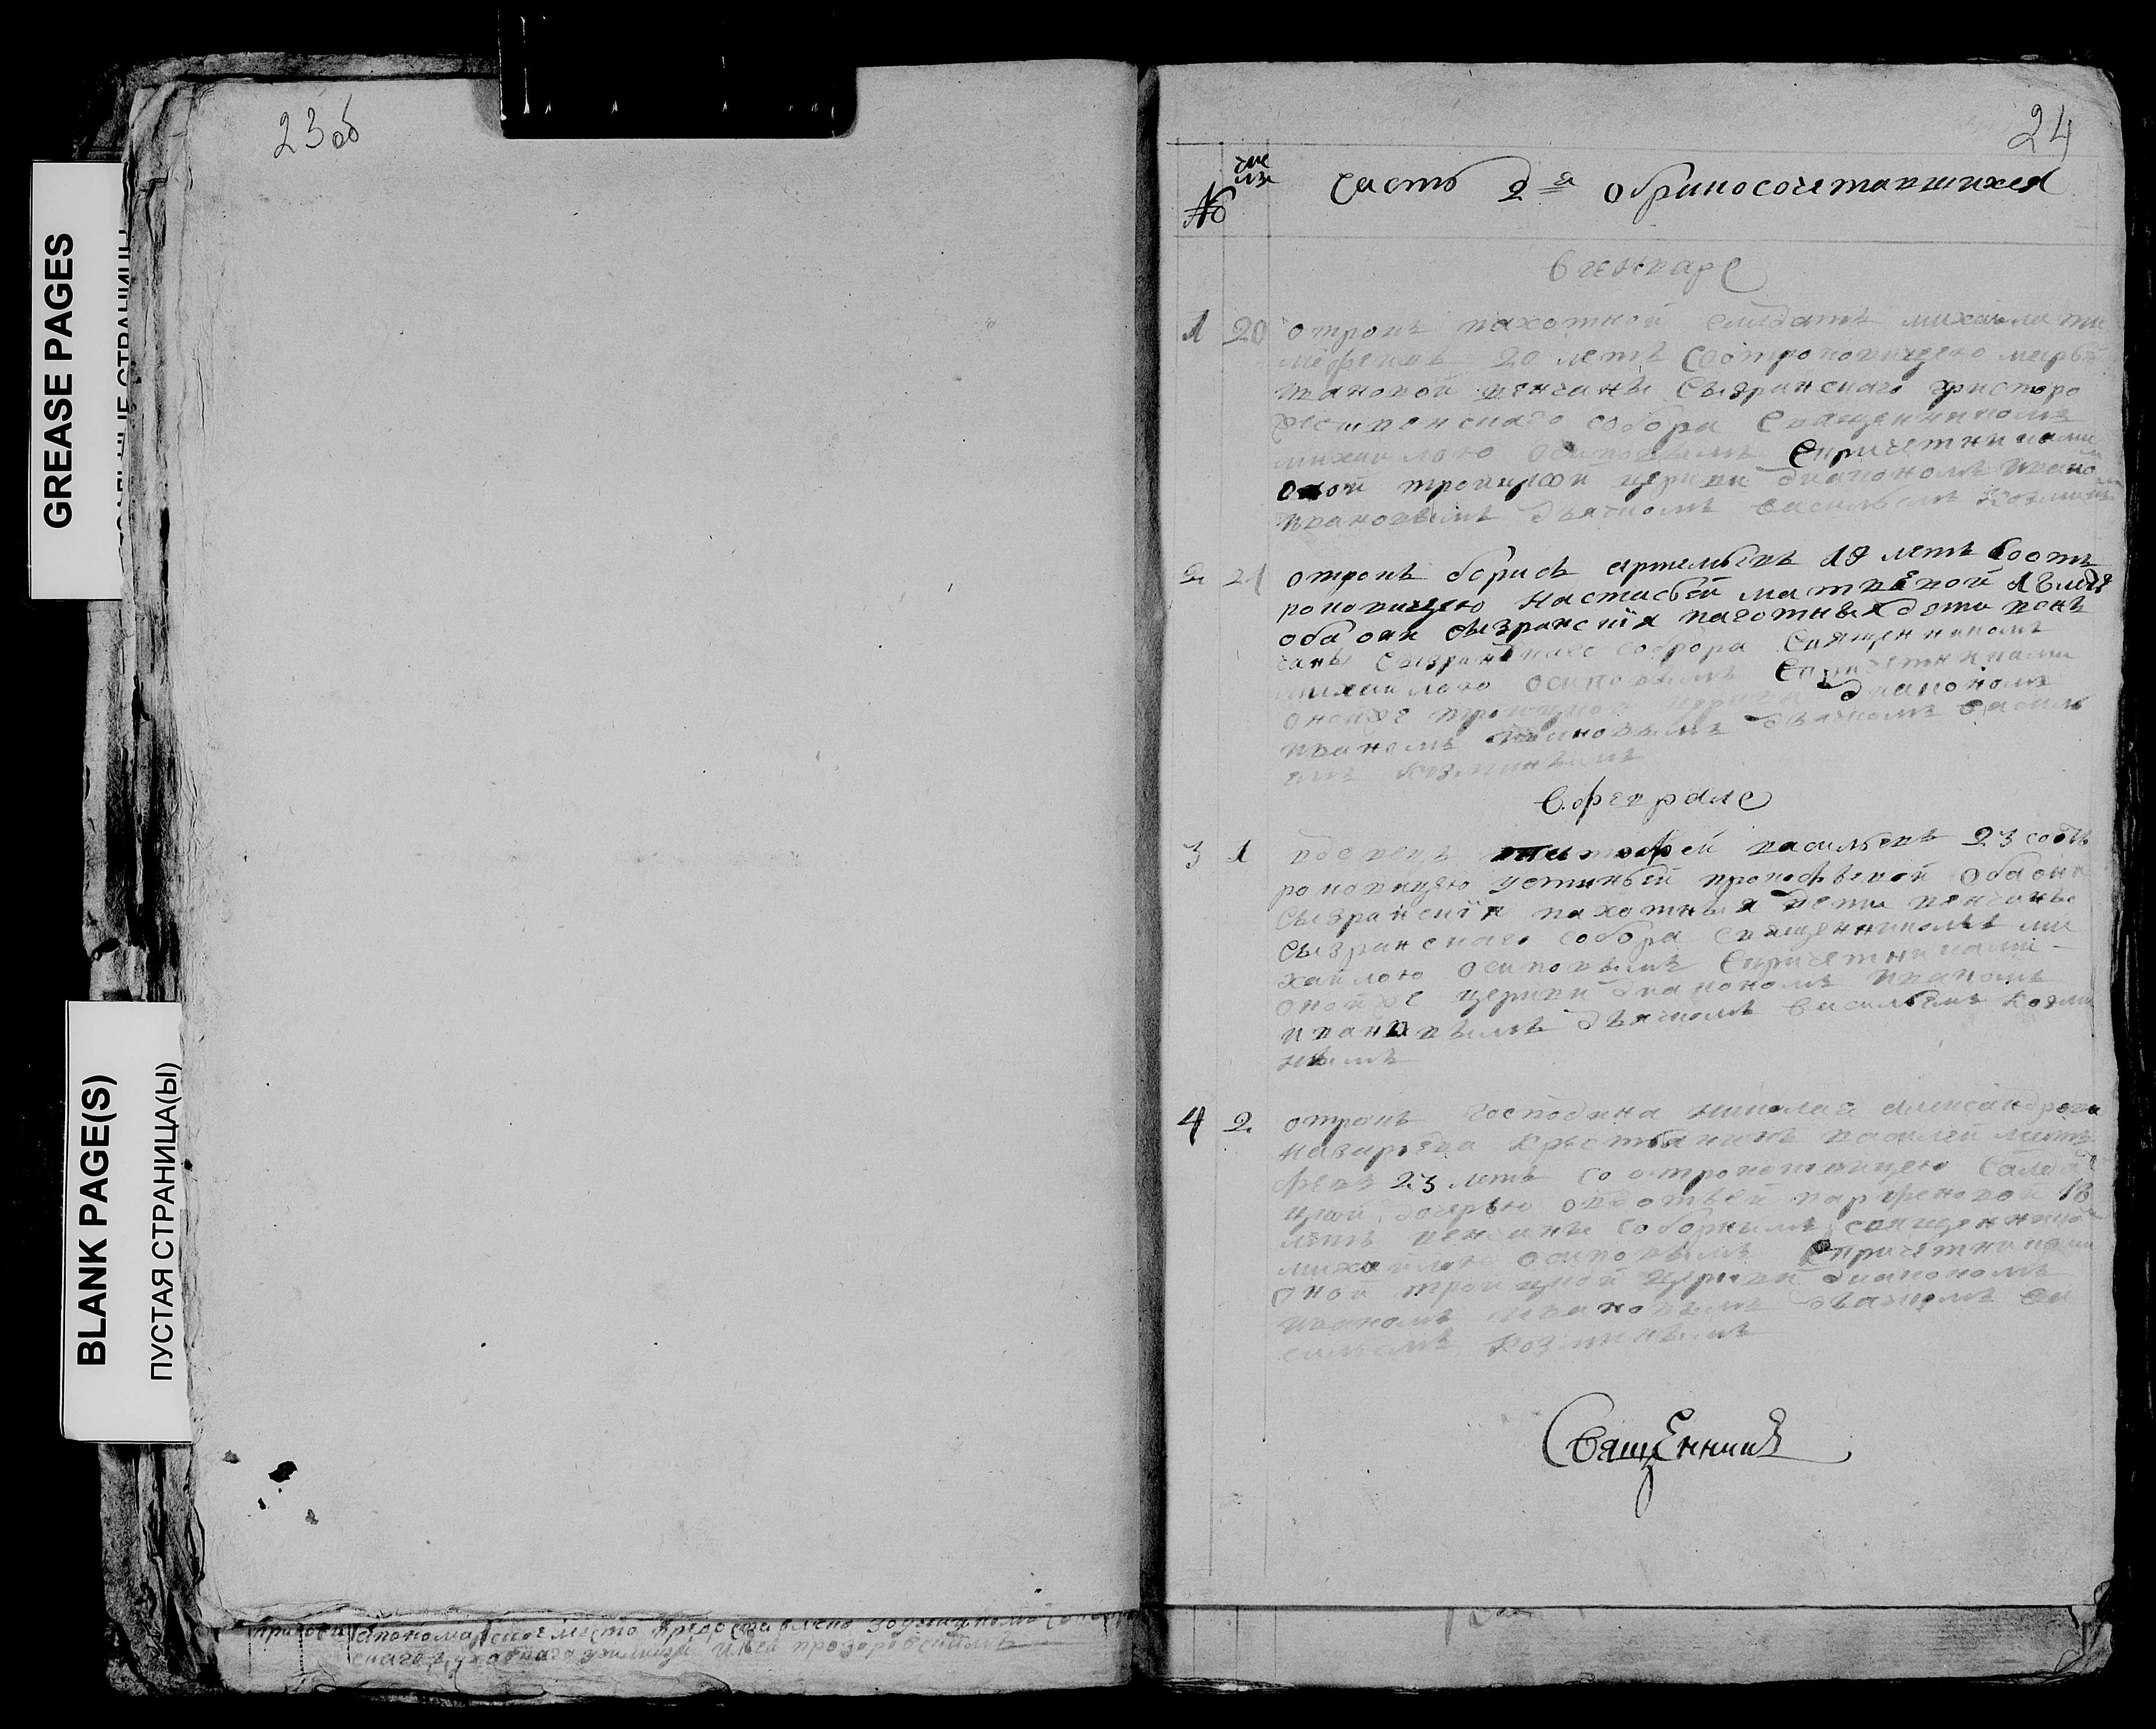 GREASE PAGES
BLANK PAGE(S)
ПУСТАЯ СТРАНИЦА(Ы)
23об
24
№
чис
ла
часть 2я обриносочетавшихся
в генваре
1 20 отрокъ пахотной салдатъ михаила ти
мофеевъ 20 летъ соотроковицею марьей
вановой венчаны Сызранскаго христоро
ждественскаго собора Священникомъ
михаилою осиповымъ Спричетниками
оной троицкой церкви диакономъ ивано
ивановымъ дьячкомъ васильемъ козминым
2 21 отрокъ борисъ артемьевъ 19 летъ соот
роковицею настасьей матвевой 18 летъ
оба они сызранскiя пахотныя дети вен
чаны Сызранскаго собора Священникомъ
михаилою осиповымъ Спричетниками
онойже троицкой церкви диакономъ
иваномъ ивановымъ дьячкомъ василь
емъ козминымъ
в феврале
3 1 вдовецъ тимофей васильевъ 23 соот
роковицею устиньей прокофьевой оба они
Сызранскiя пахотныя дети венчаны
Сызранскаго собора священникомъ ми
хайлою осиповымъ Спричетниками
онойже церкви диакономъ иваномъ
ивановымъ дьячкомъ васильемъ козми
нымъ
4 2 отрокъ господина николая александрова
крестьянинъ василей
23 летъ со отроковицею Салда
цкой дочерью авдотьей парфеновой 18
летъ венчаны соборнымъ священнико
михайлою осиповымъ Спричетниками
оной троицкой церкви диакономъ
иваномъ ивановымъ дьячкомъ ва
сильемъ козминымъ
Священникъ
пономарское место